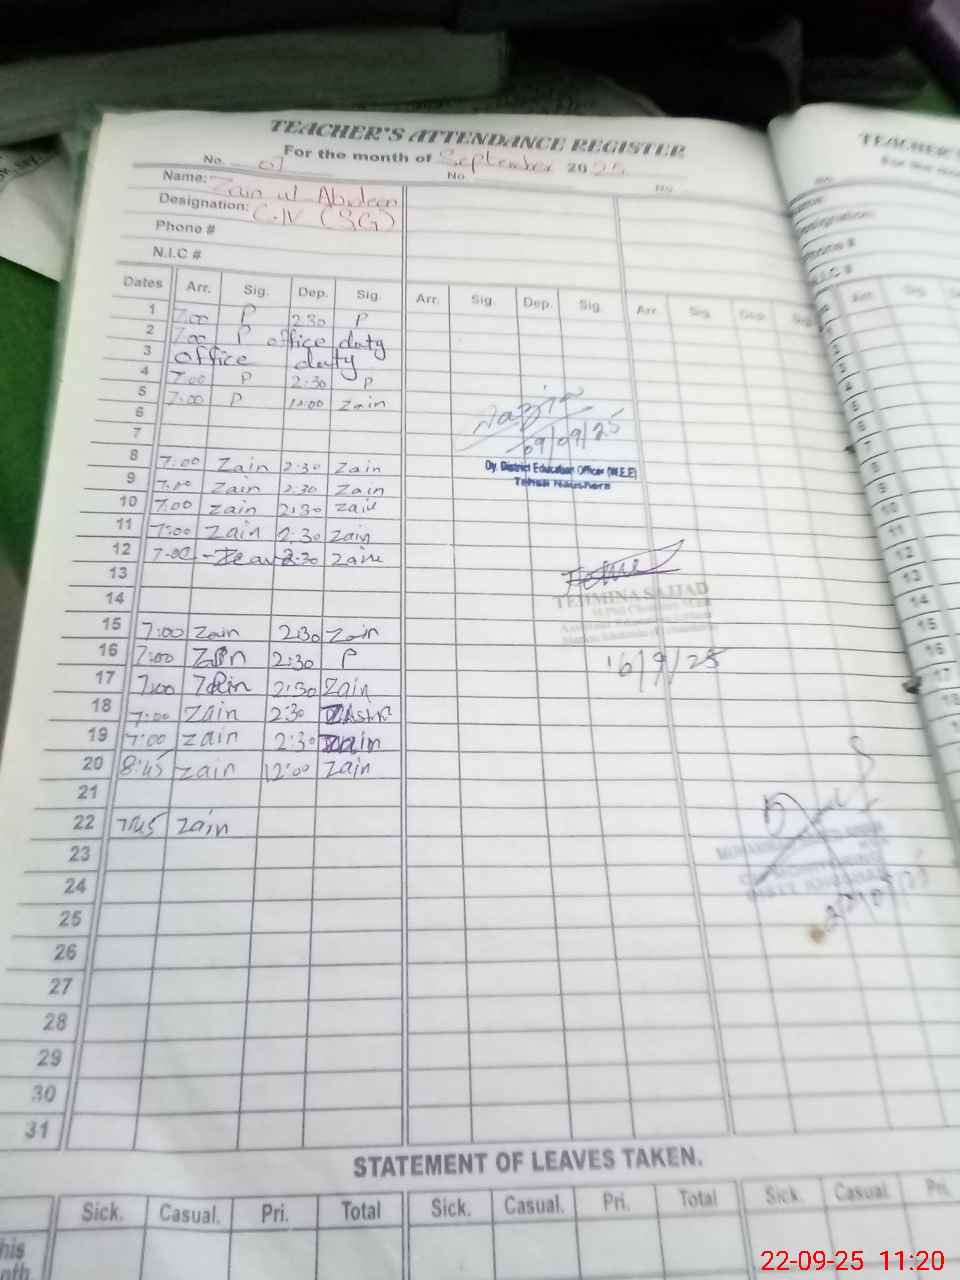 TEACHER'S ATTENDANCE REGISTER
For the month of September 2025
No. 01 No. No.
Name: Zain ul Abideen
Designation: C-IV (SG)
Phone #
N.I.C #
Dates Arr. Sig. Dep. Sig. Arr. Sig. Dep. Sig. Arr. Sig. Dep. Sig.
1 7:00 P 2:30 P
2 7:00 P office duty
3 office duty
4 7:00 P 2:30 P
5 7:00 P 12:00 Zain
6
7
8 7:00 Zain 2:30 Zain
9 7:00 Zain 2:30 Zain
10 7:00 Zain 2:30 Zain
11 7:00 Zain 2:30 Zain
12 7:00 2:30 Zain
13
14
15 7:00 Zain 2:30 Zain
16 7:00 Zain 2:30 P
17 7:00 Zain 2:30 Zain
18 7:00 Zain 2:30
19 7:00 Zain 2:30 Zain
20 8:45 Zain 12:00 Zain
21
22 7:45 Zain
23
24
25
26
27
28
29
30
31
09/09/25
Dy. District Education Officer (W.E.E)
Tehsil Naushera
TEHMINA SAJJAD
16/9/25
STATEMENT OF LEAVES TAKEN.
Sick. Casual. Pri. Total Sick. Casual. Pri. Total Sick. Casual. Pri.
TEACHER'S
1
2
3
4
5
6
7
8
9
10
11
12
13
14
15
16
17
18
22-09-25 11:20